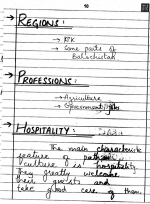 10
→ REGIONS:
→ KPK
→ Some parts of
Balochistan
→ PROFESSIONS:
→ Agriculture
→ Government jobs
→ HOSPITALITY:
The main characteristic
feature of
culture is hospitality.
They greatly welcome
their guests and
take good care of them.